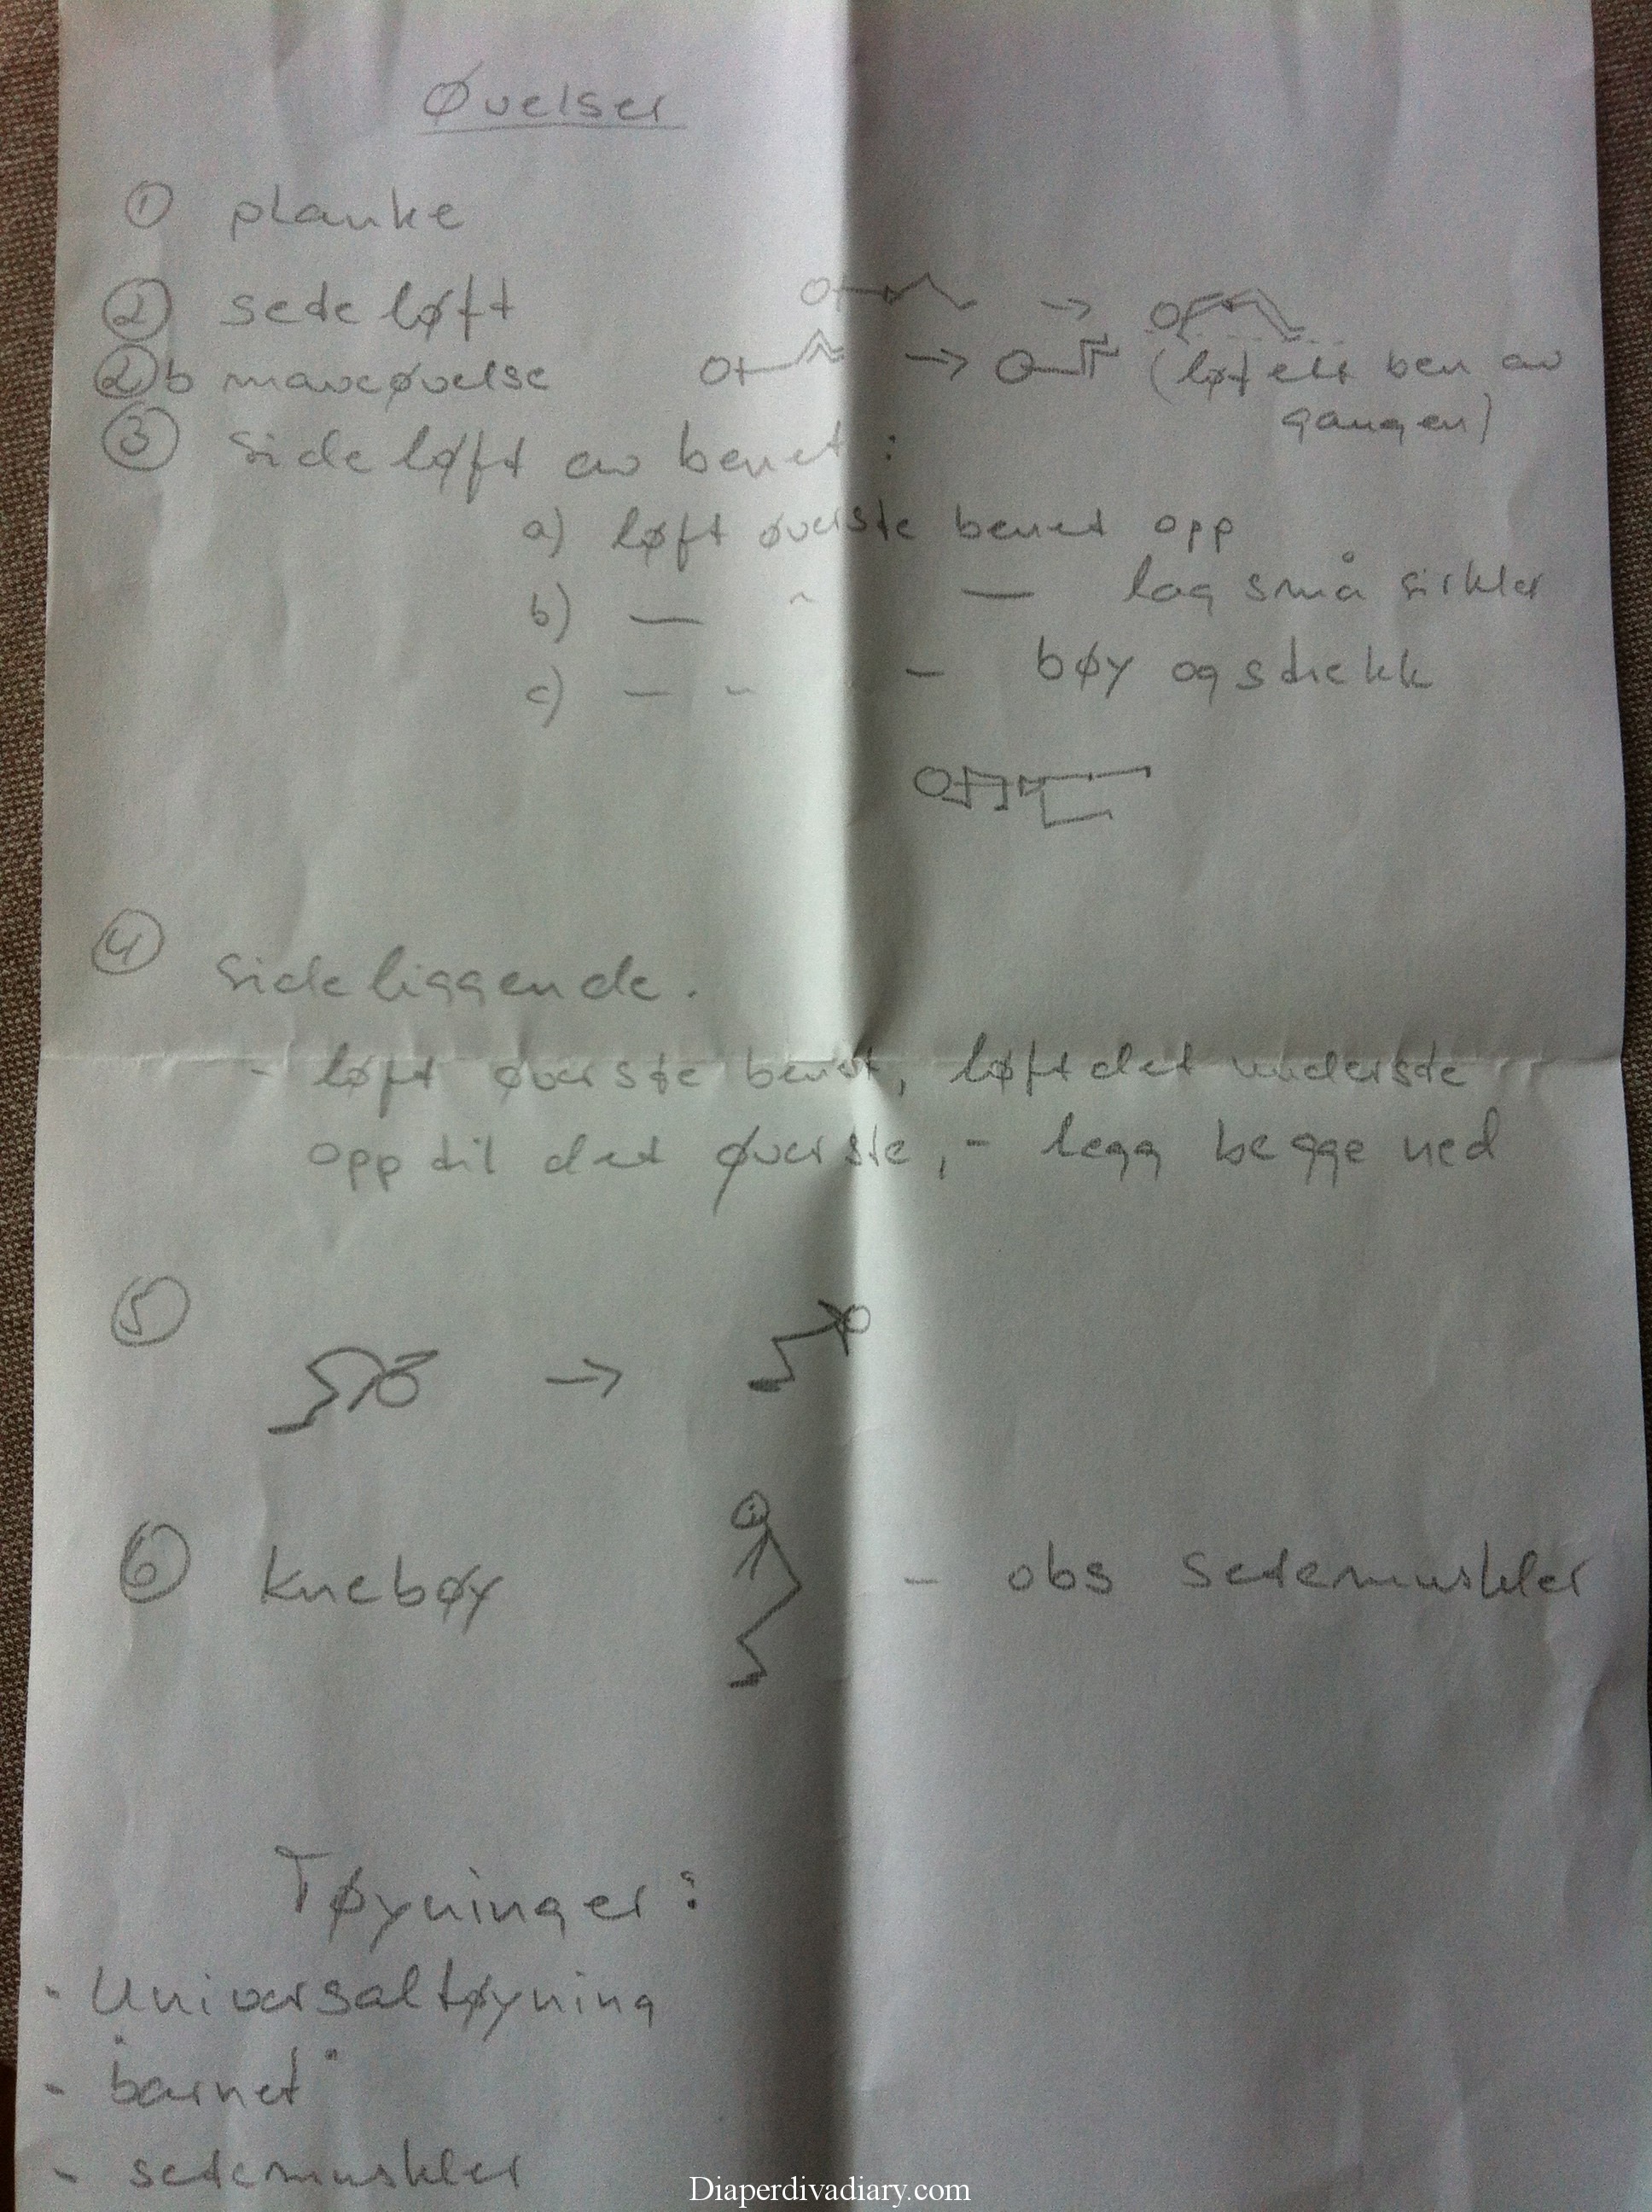 Øvelser
① planke
② seteløft → 
②b maveøvelse → (løft ett ben av
gangen)
③ Sideløft av benet :
a) løft øverste benet opp
b) — " — lag små sirkler
c) — " — bøy og strekk
④ Sideliggende.
- løft øverste benet, løft det underste
opp til det øverste, - legg begge ned
⑤ →
⑥ Knebøy - obs setemuskler
Tøyninger :
- Universaltøyning
- "barnet"
- setemuskler
Diaperdivadiary.com